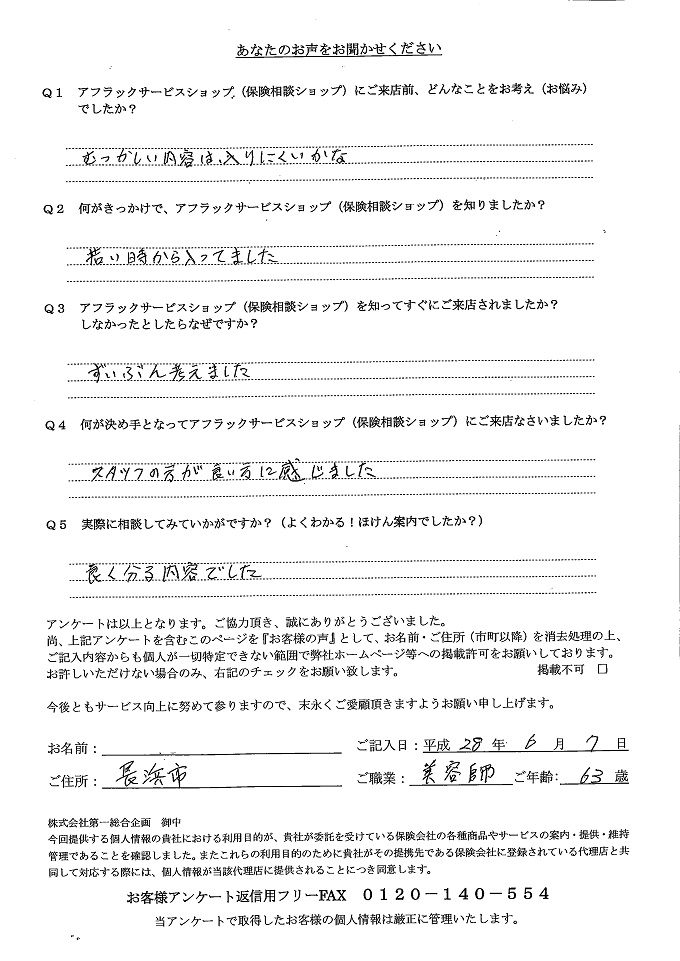 あなたのお声をお聞かせください
Q1 アフラックサービスショップ(保険相談ショップ)にご来店前、どんなことをお考え(お悩み)
でしたか?
むつかしい内容は、入りにくいかな
Q2 何がきっかけで、アフラックサービスショップ(保険相談ショップ)を知りましたか?
若い時から入ってました
Q3 アフラックサービスショップ(保険相談ショップ)を知ってすぐにご来店されましたか?
しなかったとしたらなぜですか?
ずいぶん考えました
Q4 何が決め手となってアフラックサービスショップ(保険相談ショップ)にご来店なさいましたか?
スタッフの方が良い方に感じました
Q5 実際に相談してみていかがですか?(よくわかる!ほけん案内でしたか?)
良く分る内容でした
アンケートは以上となります。ご協力頂き、誠にありがとうございました。
尚、上記アンケートを含むこのページを『お客様の声』として、お名前・ご住所(市町以降)を消去処理の上、
ご記入内容からも個人が一切特定できない範囲で弊社ホームページ等への掲載許可をお願いしております。
お許しいただけない場合のみ、右記のチェックをお願い致します。 掲載不可 □
今後ともサービス向上に努めて参りますので、末永くご愛顧頂きますようお願い申し上げます。
お名前: ご記入日:平成 28 年 6 月 7 日
ご住所: 長浜市 ご職業: 美容師 ご年齢: 63 歳
株式会社第一総合企画 御中
今回提供する個人情報の貴社における利用目的が、貴社が委託を受けている保険会社の各種商品やサービスの案内・提供・維持
管理であることを確認しました。またこれらの利用目的のために貴社がその提携先である保険会社に登録されている代理店と共
同して対応する際には、個人情報が当該代理店に提供されることにつき同意します。
お客様アンケート返信用フリーFAX 0120-140-554
当アンケートで取得したお客様の個人情報は厳正に管理いたします。